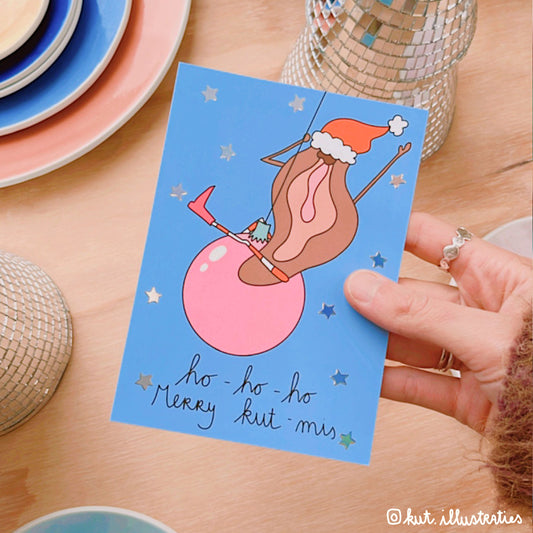 ho-ho-ho
Merry kut-mis
kut.illustraties